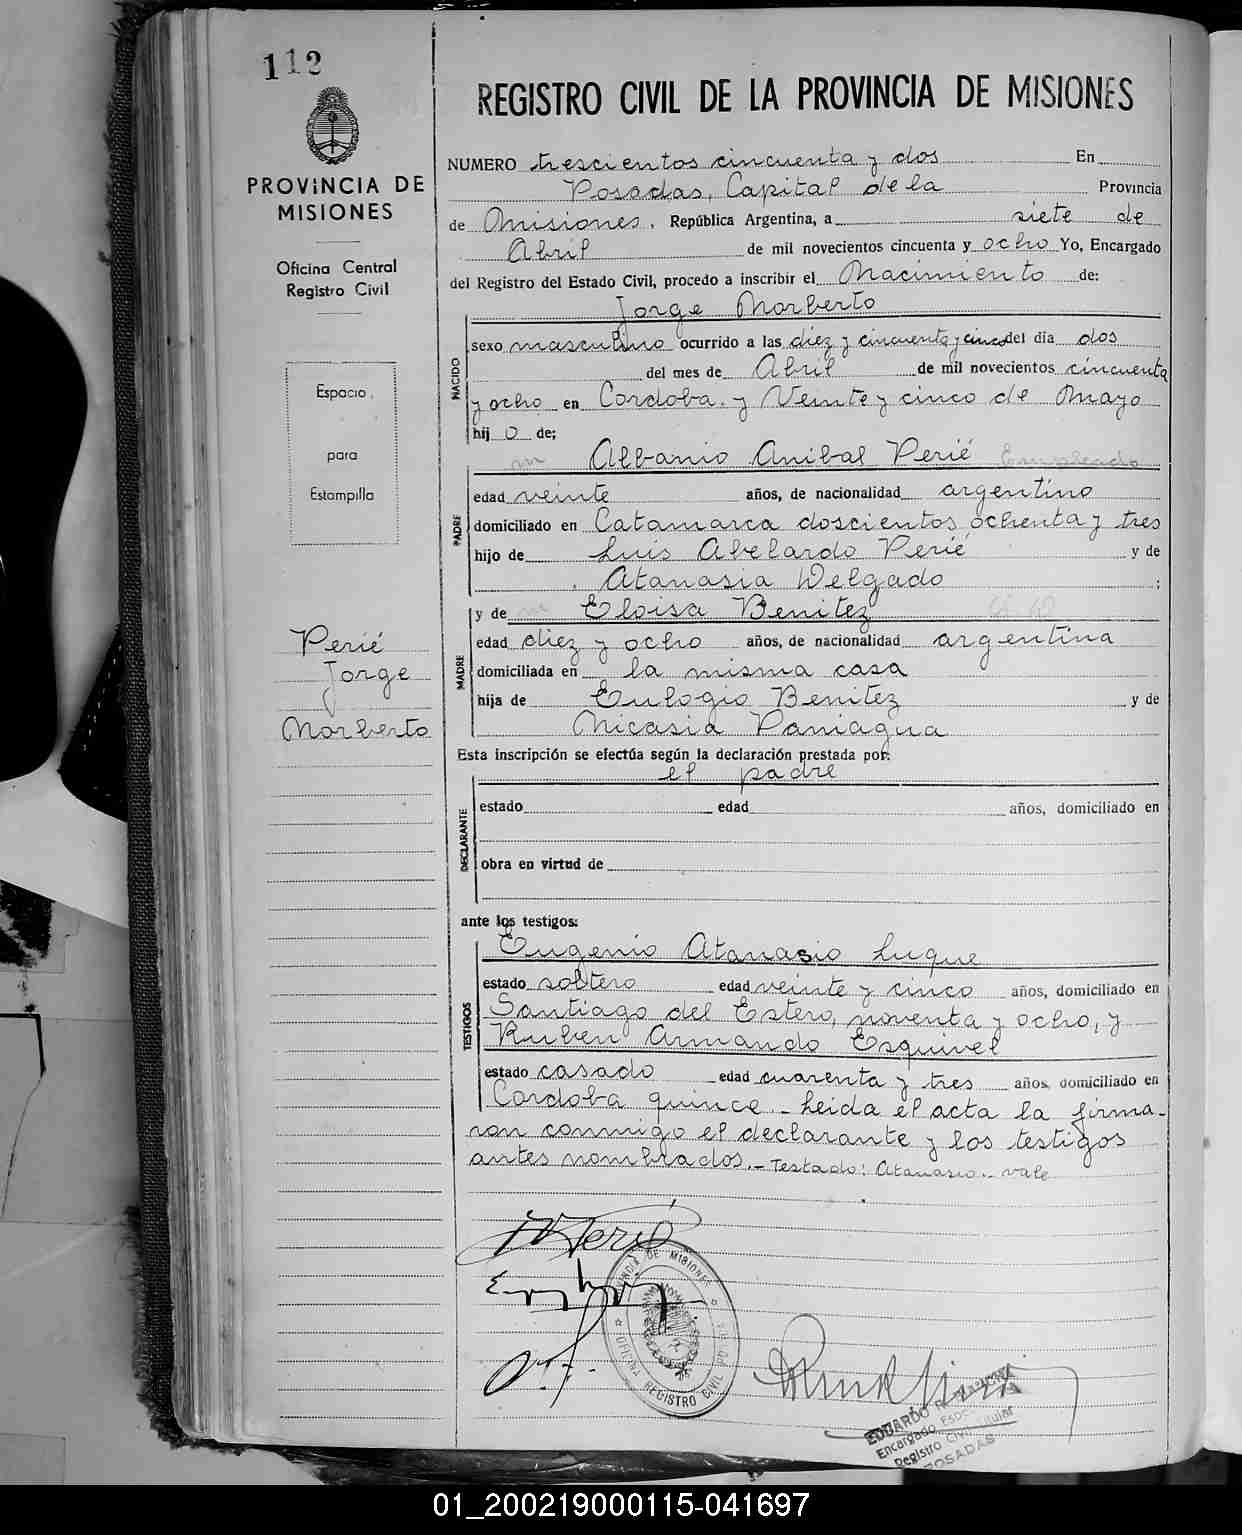 112
PROVINCIA DE
MISIONES
Oficina Central
Registro Civil
Espacio
para
Estampilla
Perié
Jorge
Norberto
REGISTRO CIVIL DE LA PROVINCIA DE MISIONES
NUMERO trescientos cincuenta y dos En
Posadas, Capital de la Provincia
de Misiones. República Argentina, a siete de
Abril de mil novecientos cincuenta y ocho Yo, Encargado
del Registro del Estado Civil, procedo a inscribir el Nacimiento de:
Jorge Norberto
NACIDO
sexo masculino ocurrido a las diez y cincuenta y cinco del día dos
del mes de Abril de mil novecientos cincuenta
y ocho en Cordoba y Veinte y cinco de Mayo
hij o de;
Albanio Anibal Perié Empleado
PADRE
edad veinte años, de nacionalidad argentino
domiciliado en Catamarca doscientos ochenta y tres
hijo de Luis Abelardo Perié y de
Atanasia Delgado ;
y de Eloisa Benitez
MADRE
edad diez y ocho años, de nacionalidad argentina
domiciliada en la misma casa
hija de Eulogio Benitez y de
Nicasia Paniagua
Esta inscripción se efectúa según la declaración prestada por:
el padre
DECLARANTE
estado edad años, domiciliado en
obra en virtud de
ante los testigos:
Eugenio Atanasio Luque
TESTIGOS
estado soltero edad veinte y cinco años, domiciliado en
Santiago del Estero, noventa y ocho, y
Ruben Armando Esquivel
estado casado edad cuarenta y tres años, domiciliado en
Cordoba quince.- Leida el acta la firma-
ron conmigo el declarante y los testigos
antes nombrados.- Testado: Atanasio.- vale
Perié
PROVINCIA DE MISIONES
OFICINA REGISTRO CIVIL
EDUARDO
Encargado
Registro Civil Titular
POSADAS
01_200219000115-041697